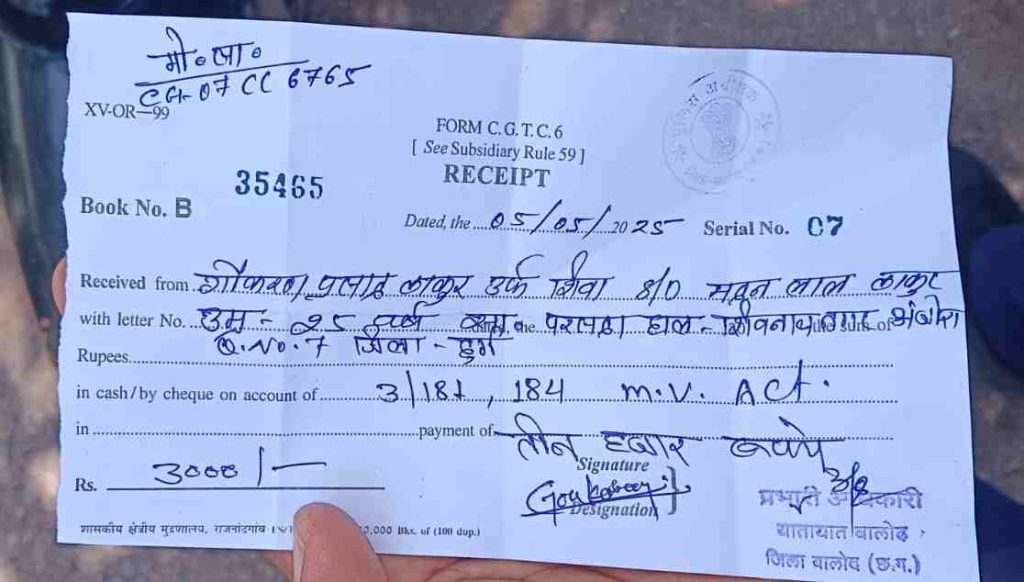 मो॰ सा॰
CG-07 CC 6765
XV-OR—99
FORM C.G.T.C. 6
[ See Subsidiary Rule 59 ]
RECEIPT
35465
Book No. B
Dated, the 05/05/2025 Serial No. 07
Received from प्रसाद ठाकुर उर्फ शिवा S/O मदन लाल ठाकुर
with letter No. उम्र - 25 वर्ष the हाल - of
Q.No. 7 जिला - दुर्ग
Rupees
in cash/by cheque on account of 3/181, 184 M.V. ACT.
in payment of तीन हजार रूपये
Rs. 3000/— Signature
Designation
प्रभारी अधिकारी
यातायात बालोद
जिला बालोद (छ.ग.)
शासकीय क्षेत्रीय मुद्रणालय, राजनांदगांव 0,000 Bks. of (100 dup.)